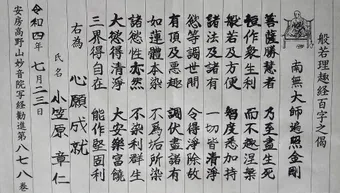 般若理趣経百字之偈
南無大師遍照金剛
菩薩勝慧者 乃至盡生死
恒作衆生利 而不趣涅槃
般若及方便 智度悉加持
諸法及諸有 一切皆清浄
慾等調世間 令得浄除故
有頂及悪趣 調伏盡諸有
如蓮體本染 不為垢所染
諸慾性亦然 不染利群生
大慾得清浄 大安樂富饒
三界得自在 能作堅固利
右為 心願成就
氏名 小笠原 章仁
令和四年 七月二三日
安房高野山妙音院写経勧進第八七八巻